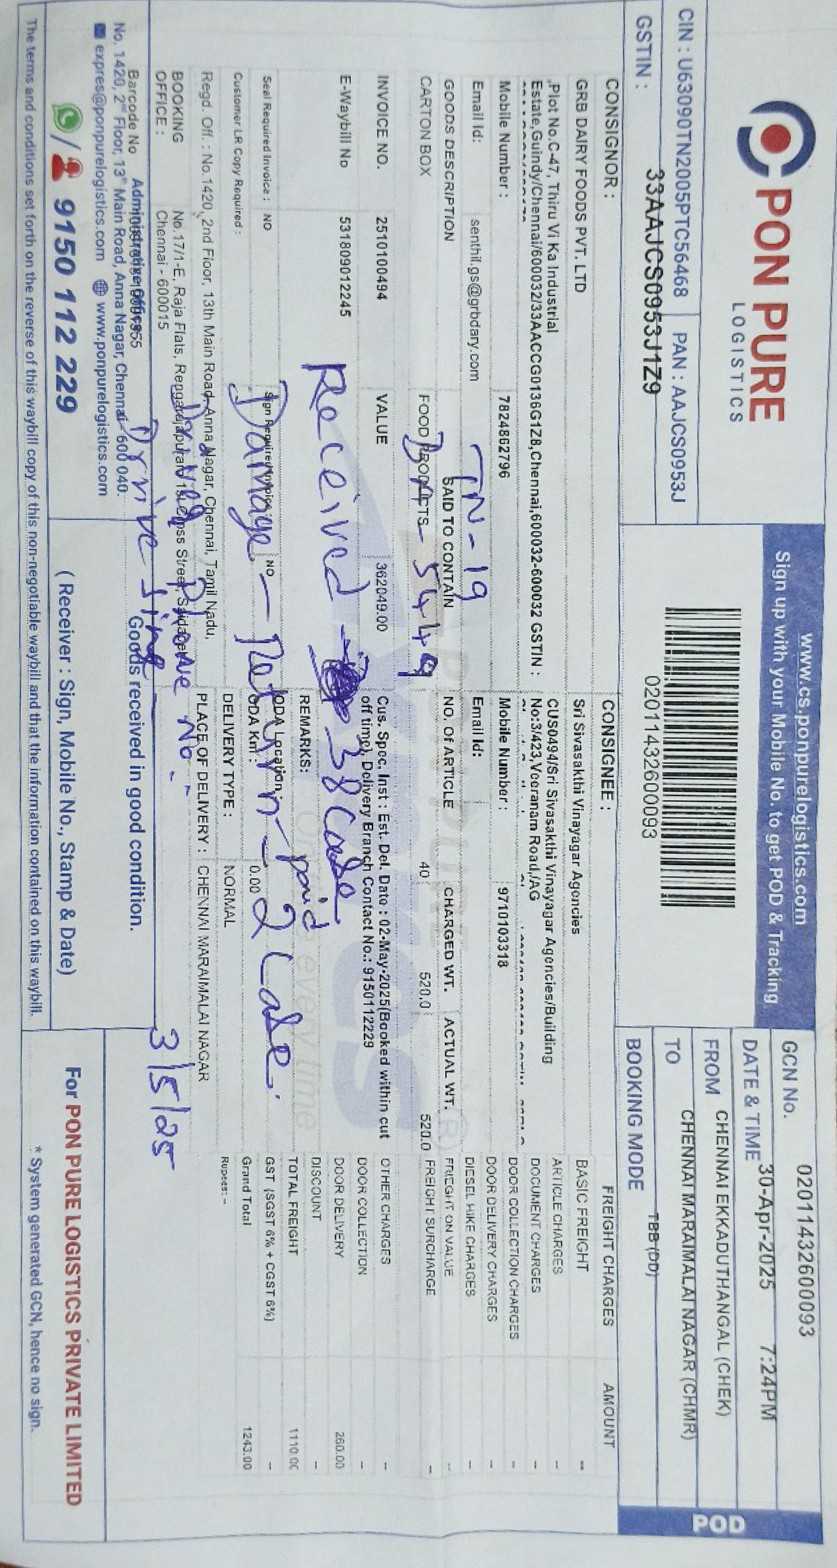 PON PURE
LOGISTICS
CIN : U63090TN2005PTC56468 PAN : AAJCS0953J
GSTIN : 33AAJCS0953J1Z9
www.cs.ponpurelogistics.com
Sign up with your Mobile No. to get POD & Tracking
02011432600093
GCN No. 02011432600093
DATE & TIME 30-Apr-2025 7:24PM
FROM CHENNAI EKKADUTHANGAL (CHEK)
TO CHENNAI MARAIMALAI NAGAR (CHMR)
BOOKING MODE TBB (DD)
POD
CONSIGNOR :
GRB DAIRY FOODS PVT. LTD
,Plot No.C-47, Thiru Vi Ka Industrial
Estate,Guindy/Chennai/600032/33AACCG0136G1Z8,Chennai,600032-600032 GSTIN :
Mobile Number : 7824862796
Email Id: senthil.gs@grbdairy.com
CONSIGNEE :
Sri Sivasakthi Vinayagar Agencies
CUS0494/Sri Sivasakthi Vinayagar Agencies/Building
No:3/423,Veeranam Road,/AG
Mobile Number : 9710103318
Email Id:
TN-19
5449
GOODS DESCRIPTION SAID TO CONTAIN NO. Of ARTICLE CHARGED WT. ACTUAL WT.
CARTON BOX FOOD PRODUCTS 40 520.0 520.0
INVOICE NO. 2510100494 VALUE 362049.00
E-Waybill No 531809012245
Cus. Spec, Inst : Est. Del. Date : 02-May-2025(Booked within cut
off time), Delivery Branch Contact No.: 9150112229
REMARKS:
Received - 38 Case
paid
Seal Required Invoice : NO Sign Required Invoice : NO
ODA Location :
Customer LR Copy Required :
ODA Km : 0.00
Damage - Return - 2 Case.
DELIVERY TYPE : NORMAL
Regd. Off. : No.1420, 2nd Floor, 13th Main Road, Anna Nagar, Chennai, Tamil Nadu,
PLACE OF DELIVERY : CHENNAI MARAIMALAI NAGAR
BOOKING No 17/1-E, Raja Flats, Rengarajapuram 1st Cross Street, Saidapet
OFFICE : Chennai - 600015
Phone No -
3/5/25
FREIGHT CHARGES AMOUNT
BASIC FREIGHT --
ARTICLE CHARGES
DOCUMENT CHARGES --
DOOR COLLECTION CHARGES --
DOOR DELIVERY CHARGES --
DIESEL HIKE CHARGES --
FRIEGHT ON VALUE --
FREIGHT SURCHARGE --
OTHER CHARGES --
DOOR COLLECTION --
DOOR DELIVERY 260.00
DISCOUNT --
TOTAL FREIGHT 1110.00
GST (SGST 6% + CGST 6%) --
Grand Total 1243.00
Rupees: -
Barcode No
Administrative Office
No. 1420, 2nd Floor, 13th Main Road, Anna Nagar, Chennai - 600 040.
expres@ponpurelogistics.com www.ponpurelogistics.com
Goods received in good condition.
9150 112 229
( Receiver : Sign, Mobile No., Stamp & Date)
For PON PURE LOGISTICS PRIVATE LIMITED
The terms and conditions set forth on the reverse of this waybill copy of this non-negotiable waybill and that the information contained on this waybill.
* System generated GCN, hence no sign.